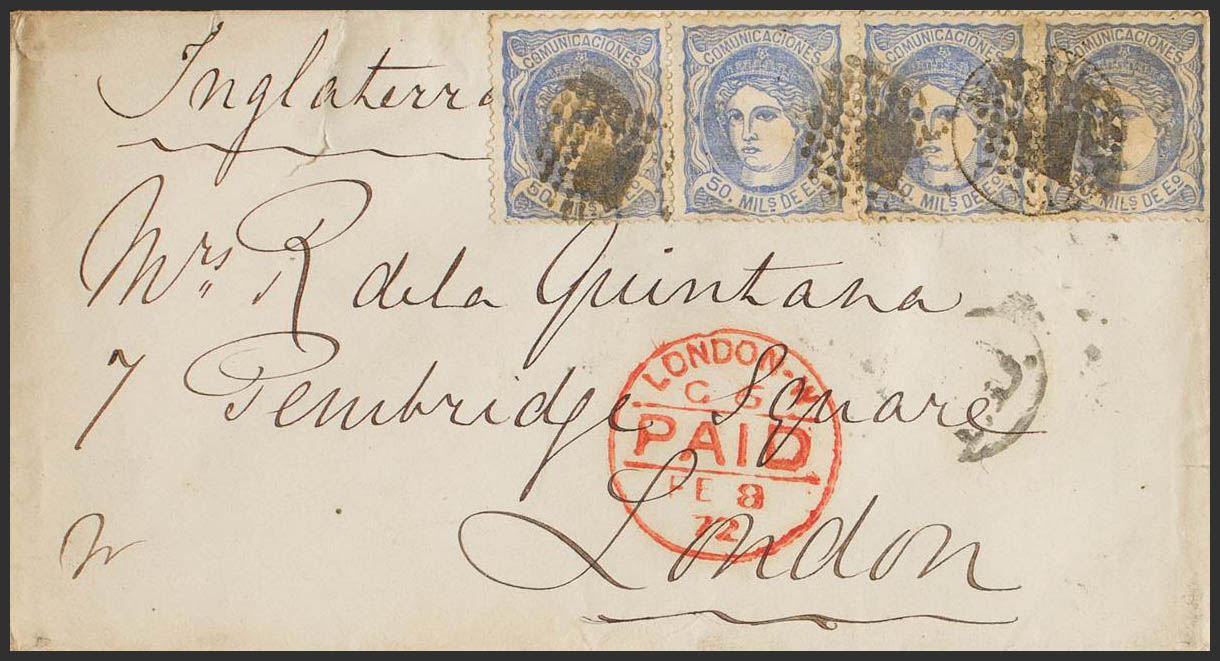 Inglaterra
COMUNICACIONES
50. MILS DE Eo.
COMUNICACIONES
50. MILS DE Eo.
COMUNICACIONES
50. MILS DE Eo.
COMUNICACIONES
50. MILS DE Eo.
Mrs R de la Quintana
7 Pembridge Square
London
LONDON-W
C G
PAID
FE 8
72
W